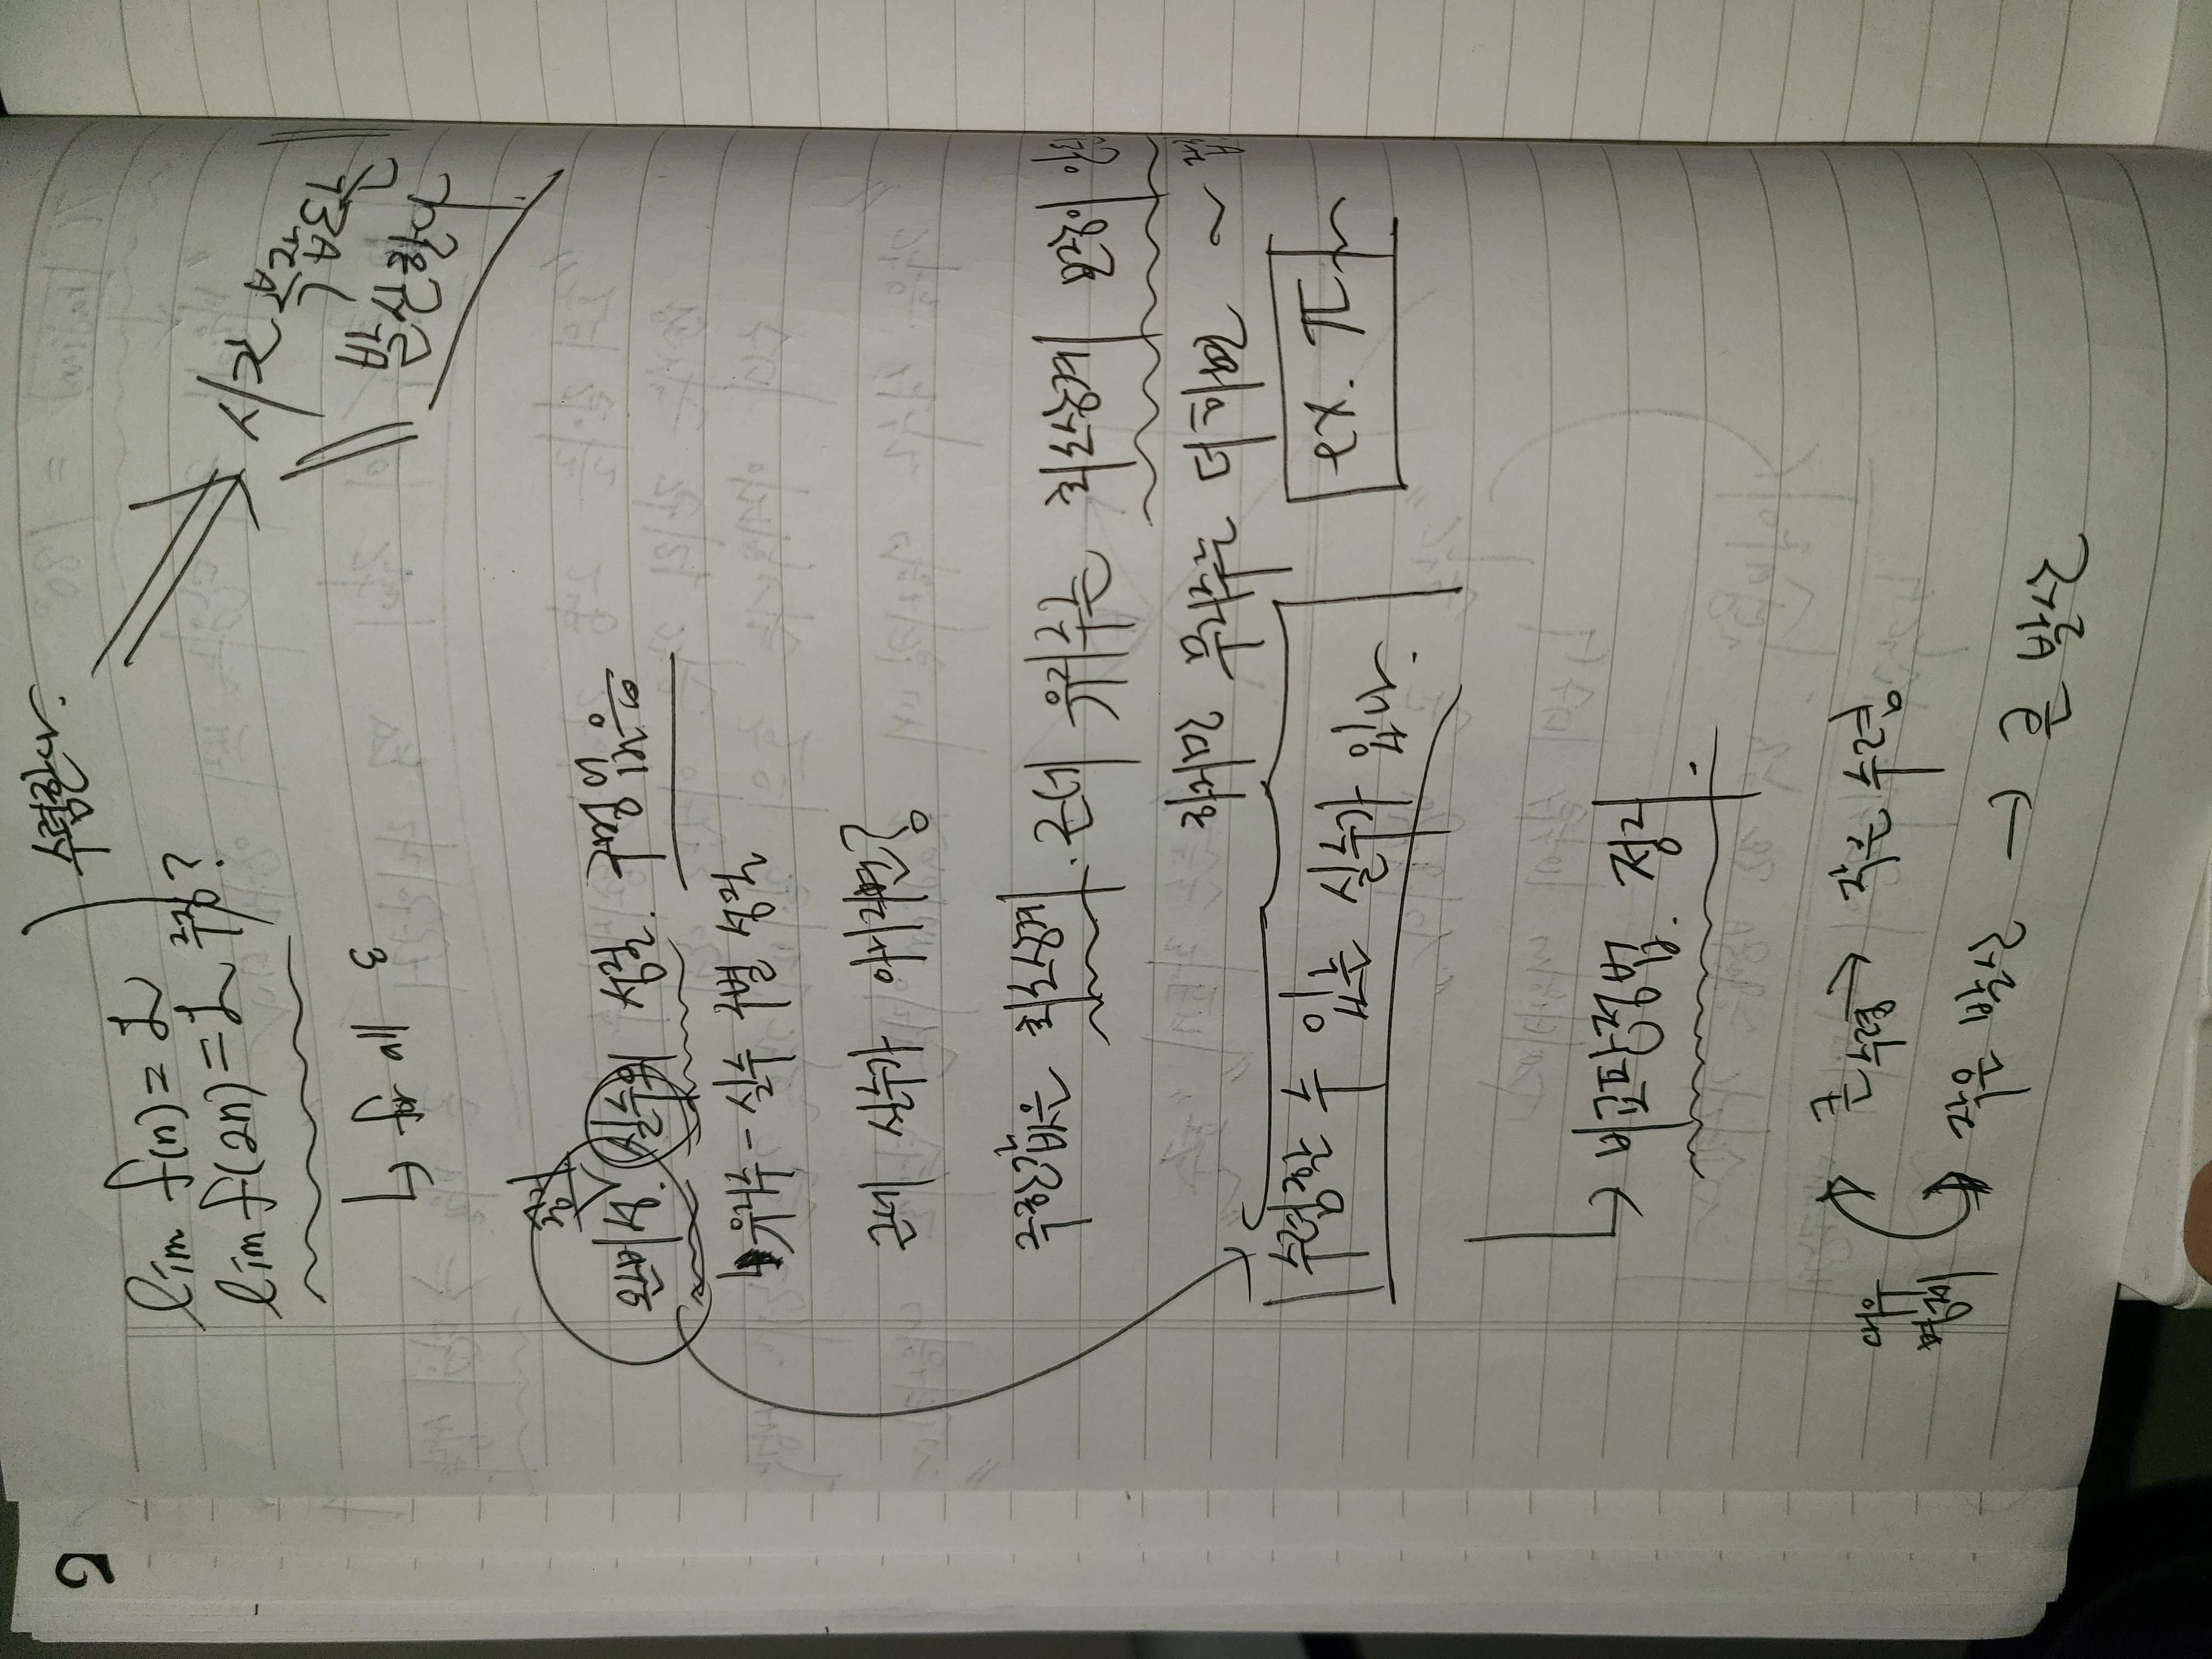 수렴한다.
lim f(n) = L
lim f(2n) = L 수정?
시간 부족
발산한다.
↳ f에 ε
증거
완비성. 실수의 성질. 구멍 없음
↳ 유리수 - 실수 구별 성질
근데 실수가 아니라면?
극한값은 최소상계. 근데 유리수는 최소상계 보장이
하지만 무리수는 더하면 ~
수렴할 수 있는 실수가 있다.
ex. π
↳ 비교판정법. 정리.
대우 명제
큰 수렴 → 작은 수렴
작은 발산 → 큰 발산